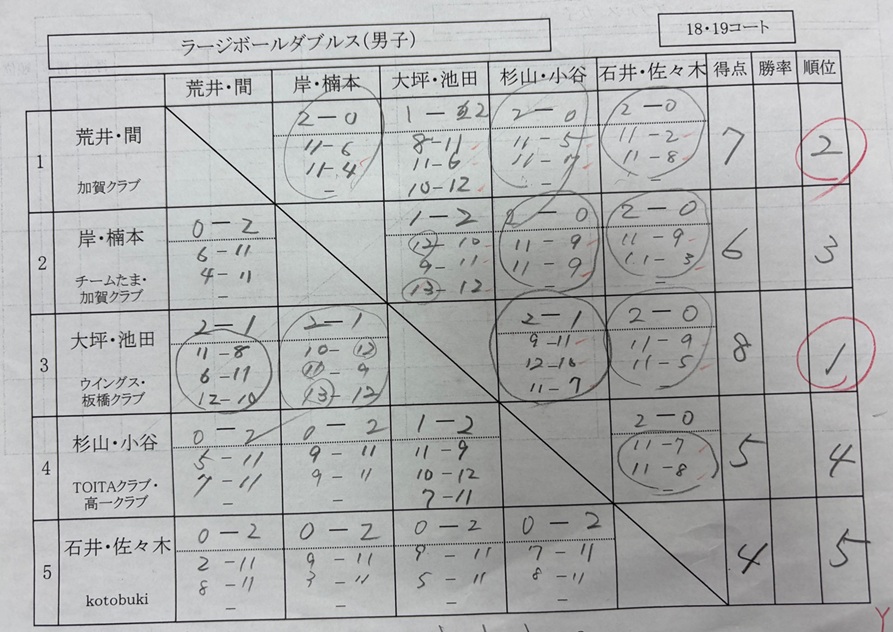 ラージボールダブルス(男子)
18・19コート
荒井・間 岸・楠本 大坪・池田 杉山・小谷 石井・佐々木 得点 勝率 順位
1 荒井・間 加賀クラブ
2-0 1-2 2-0 2-0 7 2
11-6 8-11 11-5 11-2
11-4 11-6 11-7 11-8
- 10-12 - -
2 岸・楠本 チームたま・加賀クラブ
0-2 1-2 2-0 2-0 6 3
6-11 12-10 11-9 11-9
4-11 9-11 11-9 11-3
- 13-12 - -
3 大坪・池田 ウイングス・板橋クラブ
2-1 2-1 2-1 2-0 8 1
11-8 10-12 9-11 11-9
6-11 11-9 12-10 11-5
12-10 13-12 11-7 -
4 杉山・小谷 TOITAクラブ・高一クラブ
0-2 0-2 1-2 2-0 5 4
5-11 9-11 11-9 11-7
7-11 9-11 10-12 11-8
- - 7-11 -
5 石井・佐々木 kotobuki
0-2 0-2 0-2 0-2 4 5
2-11 9-11 9-11 7-11
8-11 3-11 5-11 8-11
- - - -